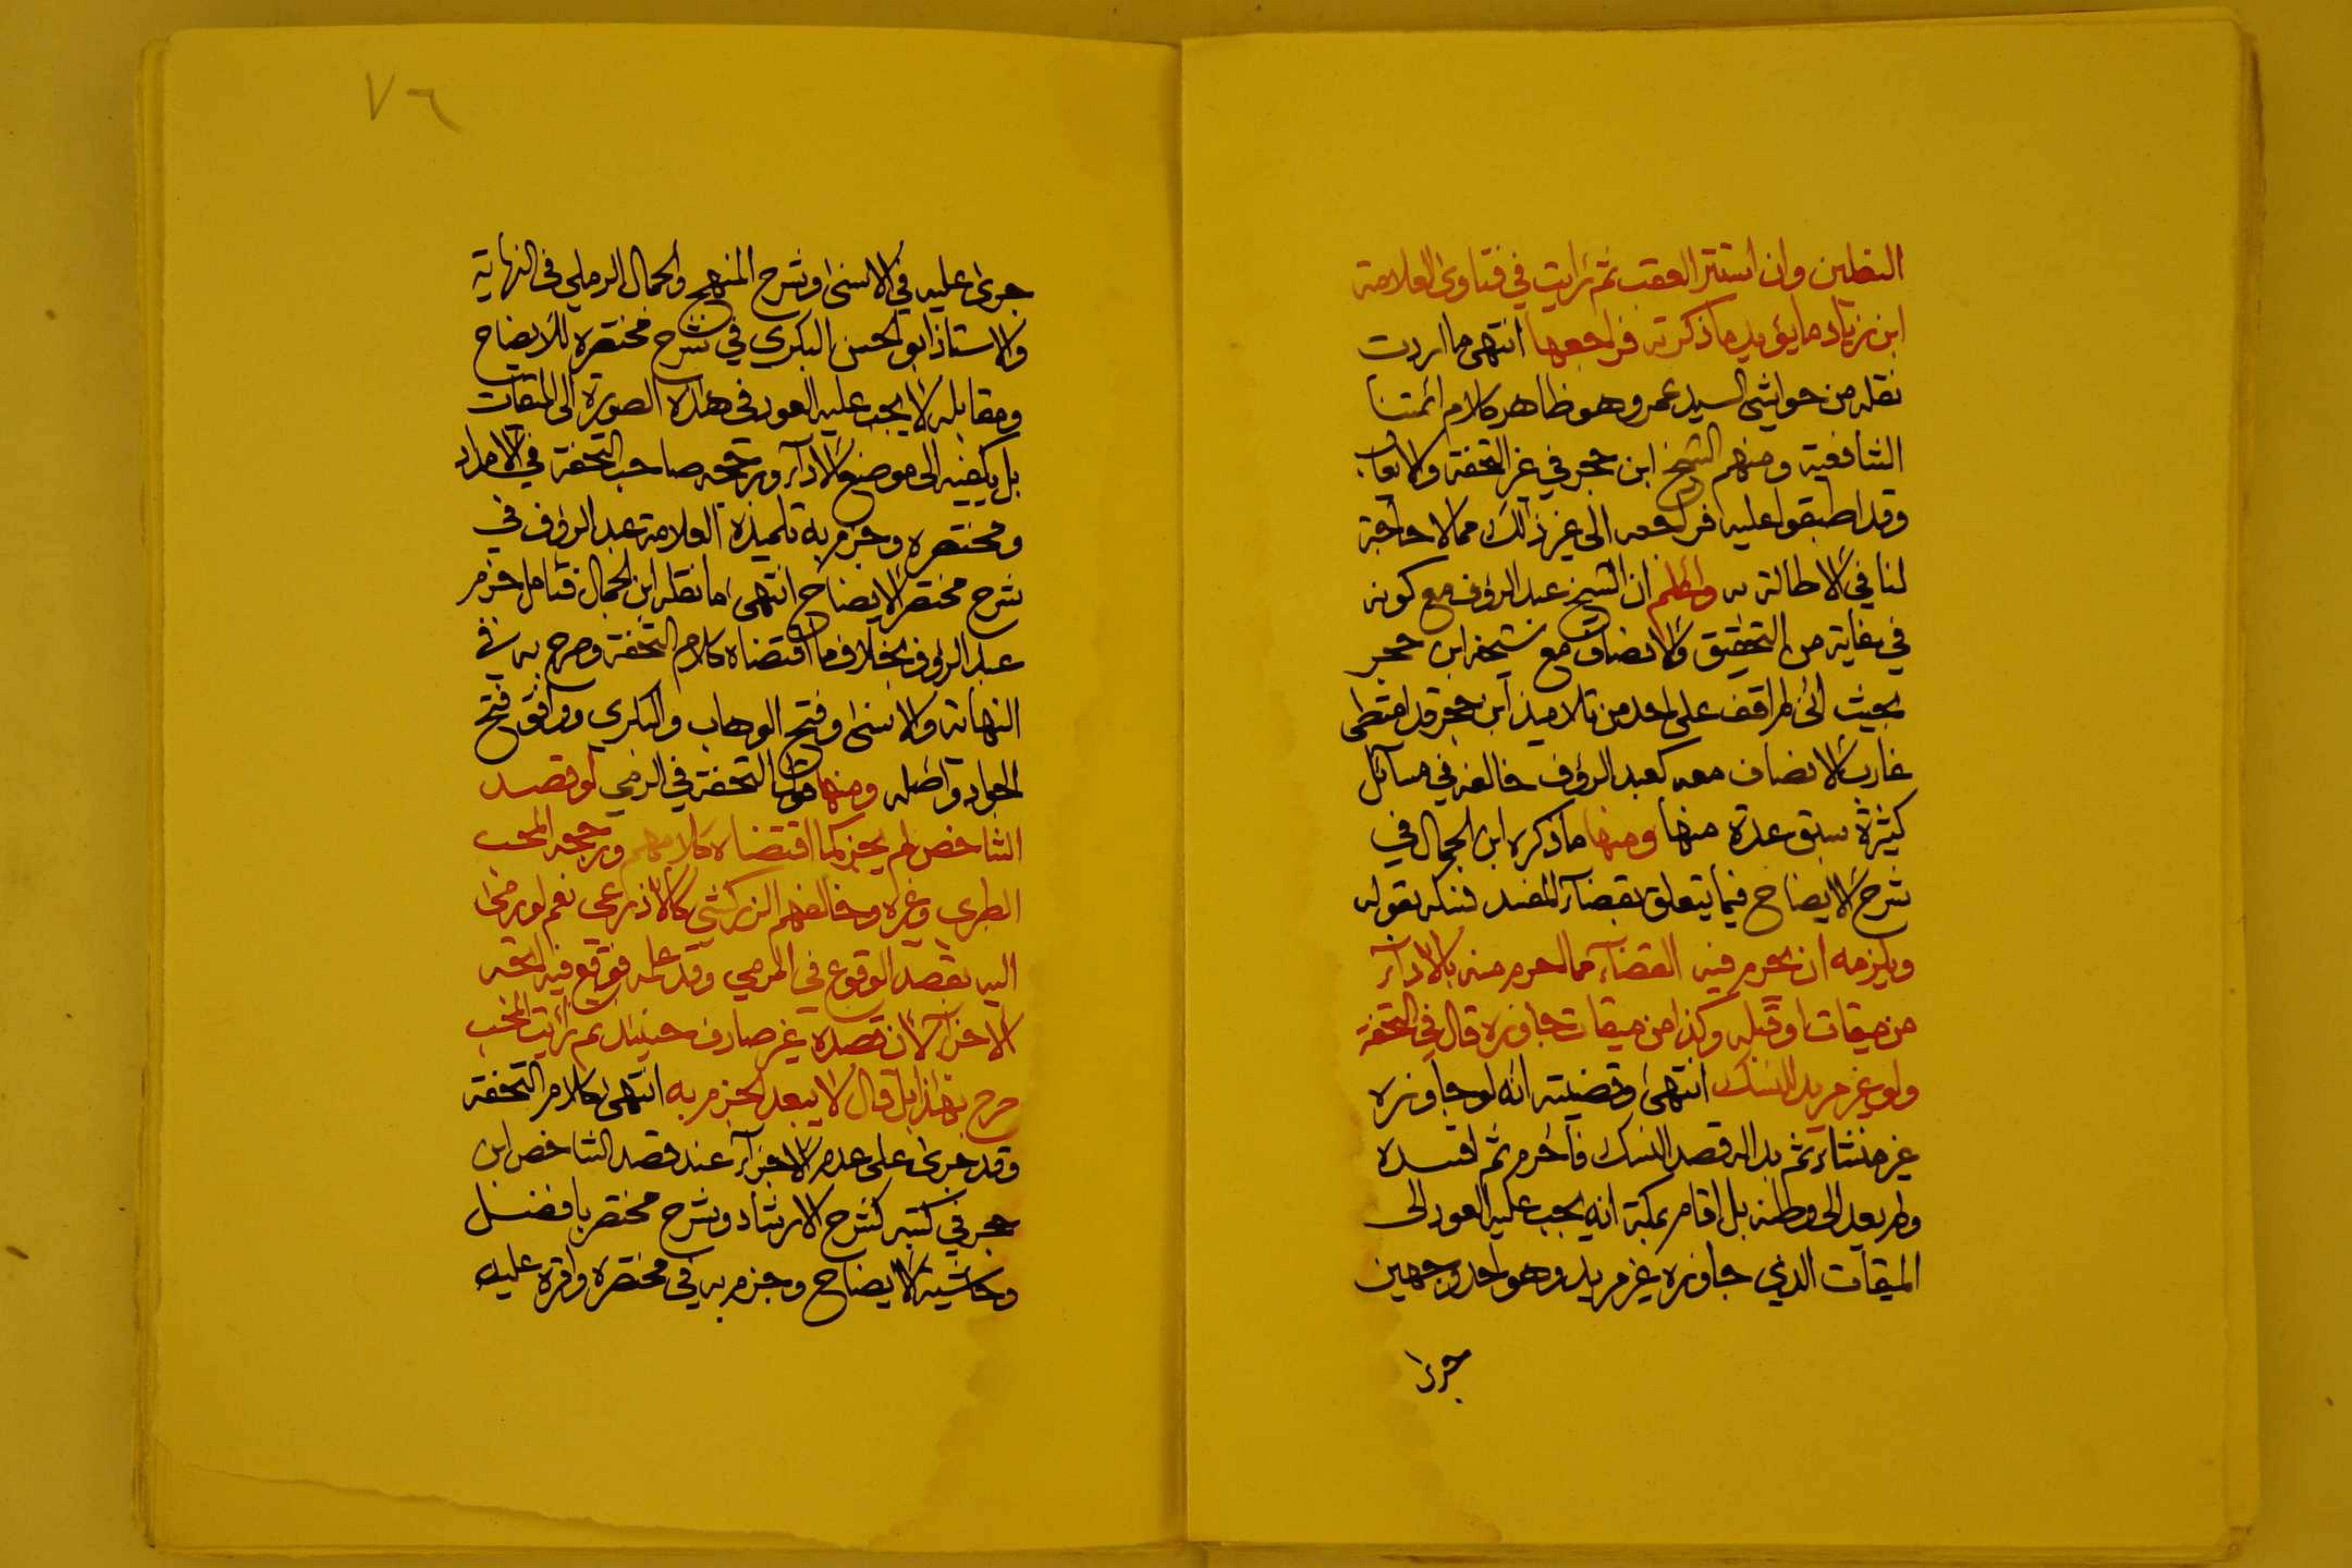 النعلين وان استتر العقب ثم رايت في فتاوى العلامة
ابن زياد ما يؤيد ما ذكرته فراجعها انتهى ما اردت
نقله من حواشي السيد عمر وهو ظاهر كلام ائمتنا
الشافعية ومنهم الشيخ ابن حجر في غير التحفة
وقد اطبقوا عليه فراجعه الى غير ذلك مما لا حاجة
لنا في الاطالة به واعلم ان الشيخ عبد الرؤف مع كونه
في غاية من التحقيق والانصاف مع شيخه ابن حجر
بحيث اني لم اقف على احد من تلاميذ ابن حجر قد امتطى
غارب الانصاف معه كعبد الرؤف خالفه في مسائل
كثيرة سبق عدة منها ومنها ما ذكره ابن الجمال في
شرح الايضاح فيما يتعلق بقضاء المفسد نسكه بقوله
ويلزمه ان يحرم فيه القضاء مما احرم منه بالاداء
من ميقات او قبله وكذا من ميقات جاوزه قال في التحفة
ولو غير مريد للنسك انتهى وقضيته انه لو جاوزه
غير منشاء ثم بدا له قصد النسك فاحرم ثم افسده
ولم يعد الى وطنه بل اقام بمكة انه يجب عليه العود الى
الميقات الذي جاوزه غير مريد وهو احد وجهين
جرى
٧٦
جرى عليه في الاسنى وشرح المنهج والجمال الرملي في النهاية
والاستاذ ابو الحسن البكري في شرح مختصره للايضاح
ومقابله لا يجب عليه العود في هذه الصورة الى الميقات
بل يكفيه الى موضع الاداء ورجحه صاحب التحفة في الامداد
ومختصره وجزم به تلميذه العلامة عبد الرؤف في
شرح مختصر الايضاح انتهى ما نقله ابن الجمال فتامل جزم
عبد الرؤف بخلاف ما اقتضاه كلام التحفة وصرح به في
النهاية والاسنى وفتح الوهاب والبكري ووافق فتح
الجواد واصله ومنها قول التحفة في الرمي لو قصد
الشاخص لم يجز كما اقتضاه كلامهم ورجحه المحب
الطبري وغيره وخالفهم الزركشي كالاذرعي نعم لو رمى
اليه بقصد الوقوع في المرمى وقد علمه فوقع فيه اتجه
الاجزاء لان قصده غير صارف حينئذ ثم رايت المحب
صرح بهذا بل قال لا يبعد الجزم به انتهى كلام التحفة
وقد جرى على عدم الاجزاء عند قصد الشاخص ابن
حجر في كتبه كشرح الارشاد وشرح مختصر بافضل
وحاشية الايضاح وجزم به في مختصره واقره عليه